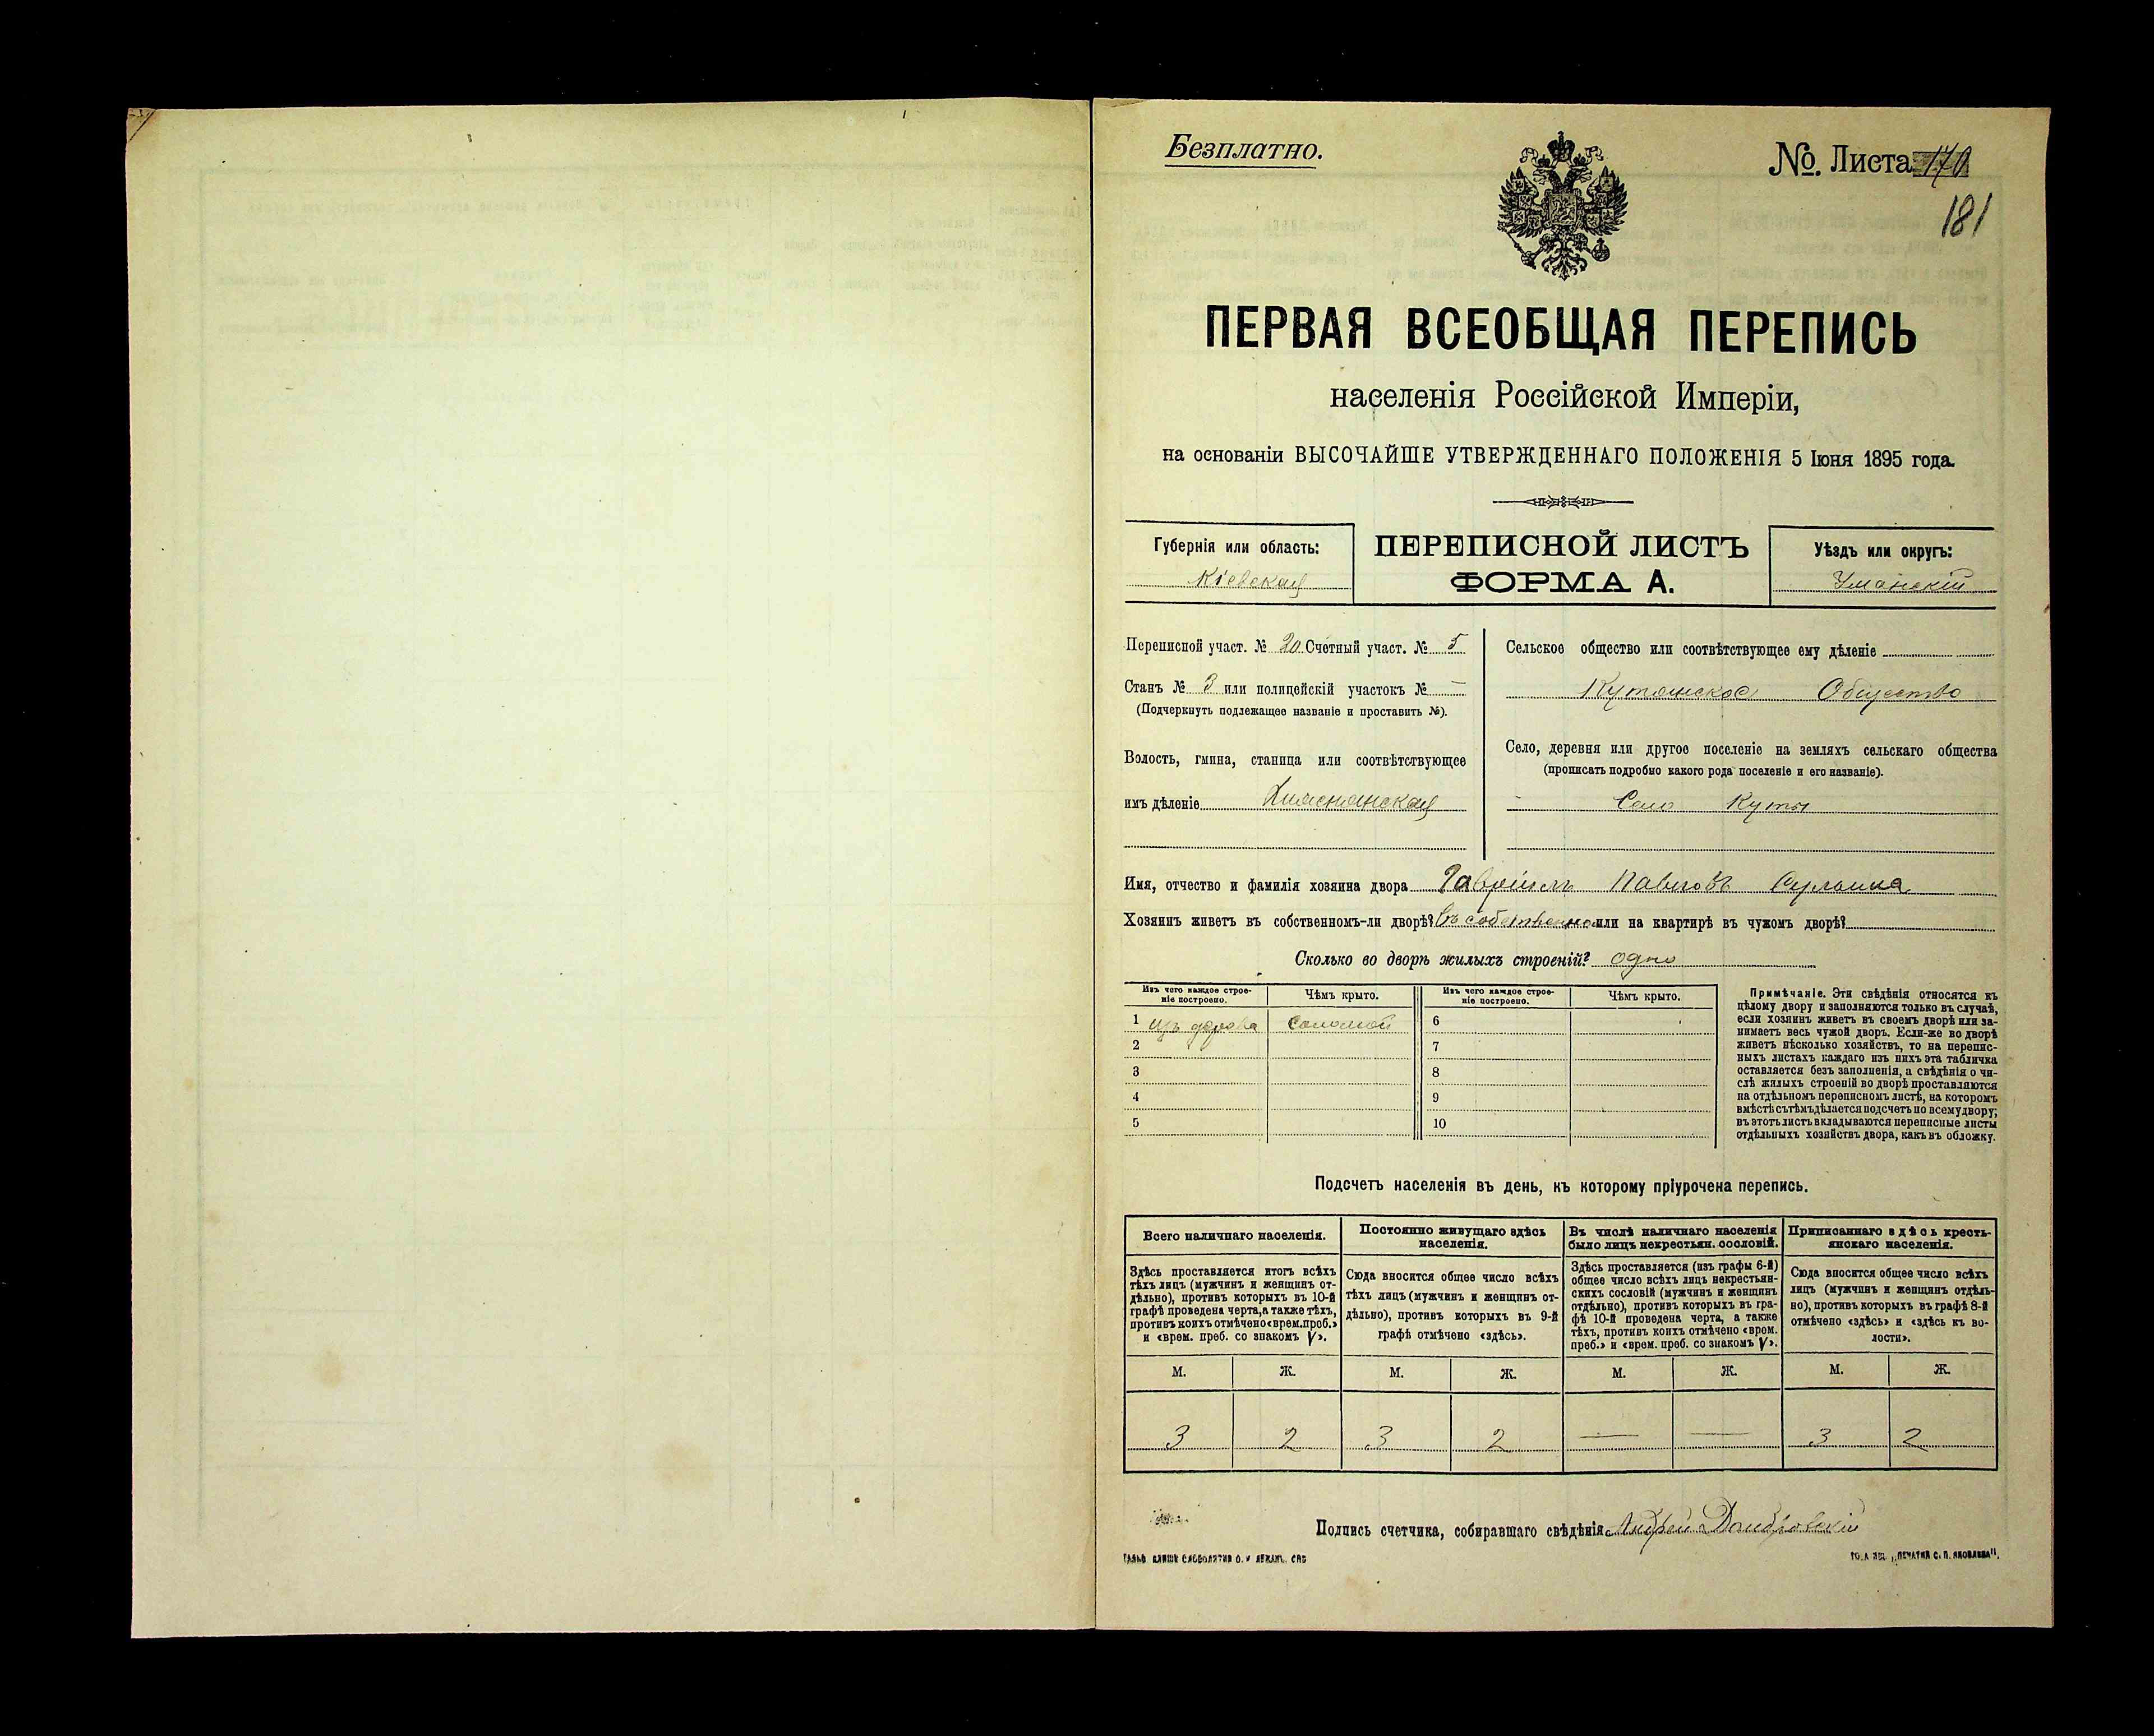 Безплатно.
№. Листа 170
181
ПЕРВАЯ ВСЕОБЩАЯ ПЕРЕПИСЬ
населенія Россійской Имперіи,
на основаніи ВЫСОЧАЙШЕ УТВЕРЖДЕННАГО ПОЛОЖЕНІЯ 5 Іюня 1895 года.
Губернія или область:
Кіевская
ПЕРЕПИСНОЙ ЛИСТЪ
ФОРМА А.
Уѣздъ или округъ:
Уманскій
Переписной участ. № 20 Счетный участ. № 5
Станъ № 3 или полицейскій участокъ № —
(Подчеркнуть подлежащее названіе и проставить №).
Волость, гмина, станица или соотвѣтствующее
имъ дѣленіе
Сельское общество или соотвѣтствующее ему дѣленіе
Кутянское Общество
Село, деревня или другое поселеніе на земляхъ сельскаго общества
(прописать подробно какого рода поселеніе и его названіе).
Село Куты
Имя, отчество и фамилія хозяина двора Гавріилъ Павловъ
Хозяинъ живетъ въ собственномъ-ли дворѣ? Въ собственно или на квартирѣ въ чужомъ дворѣ?
Сколько во дворѣ жилыхъ строеній? одно
Изъ чего каждое строе-
ніе построено.
Чѣмъ крыто.
Изъ чего каждое строе-
ніе построено.
Чѣмъ крыто.
1 изъ дерева соломой 6
2 7
3 8
4 9
5 10
Примѣчаніе. Эти свѣдѣнія относятся къ
цѣлому двору и заполняются только въ случаѣ,
если хозяинъ живетъ въ своемъ дворѣ или за-
нимаетъ весь чужой дворъ. Если-же во дворѣ
живетъ нѣсколько хозяйствъ, то на перепис-
ныхъ листахъ каждаго изъ нихъ эта табличка
оставляется безъ заполненія, а свѣдѣнія о чи-
слѣ жилыхъ строеній во дворѣ проставляются
на отдѣльномъ переписномъ листѣ, на которомъ
вмѣстѣ съ тѣмъ дѣлается подсчетъ по всему двору;
въ этотъ листъ вкладываются переписные листы
отдѣльныхъ хозяйствъ двора, какъ въ обложку.
Подсчетъ населенія въ день, къ которому пріурочена перепись.
Всего наличнаго населенія.
Постоянно живущаго здѣсь
населенія.
Въ числѣ наличнаго населенія
было лицъ некрестьян. сословій.
Приписаннаго здѣсь кресть-
янскаго населенія.
Здѣсь проставляется итогъ всѣхъ
тѣхъ лицъ (мужчинъ и женщинъ от-
дѣльно), противъ которыхъ въ 10-й
графѣ проведена черта, а также тѣхъ,
противъ коихъ отмѣчено «врем. проб.»
и «врем. преб. со знакомъ V».
Сюда вносится общее число всѣхъ
тѣхъ лицъ (мужчинъ и женщинъ от-
дѣльно), противъ которыхъ въ 9-й
графѣ отмѣчено «здѣсь».
Здѣсь проставляется (изъ графы 6-й)
общее число всѣхъ лицъ некрестьян-
скихъ сословій (мужчинъ и женщинъ
отдѣльно), противъ которыхъ въ гра-
фѣ 10-й проведена черта, а также
тѣхъ, противъ коихъ отмѣчено «врем.
преб.» и «врем. преб. со знакомъ V».
Сюда вносится общее число всѣхъ
лицъ (мужчинъ и женщинъ отдѣль-
но), противъ которыхъ въ графѣ 8-й
отмѣчено «здѣсь» и «здѣсь къ во-
лости».
М. Ж. М. Ж. М. Ж. М. Ж.
3 2 3 2 — — 3 2
Подпись счетчика, собиравшаго свѣдѣнія Андрей Домбровскій
Т-ва худ. „ПЕЧАТНЯ С. П. ЯКОВЛЕВА".